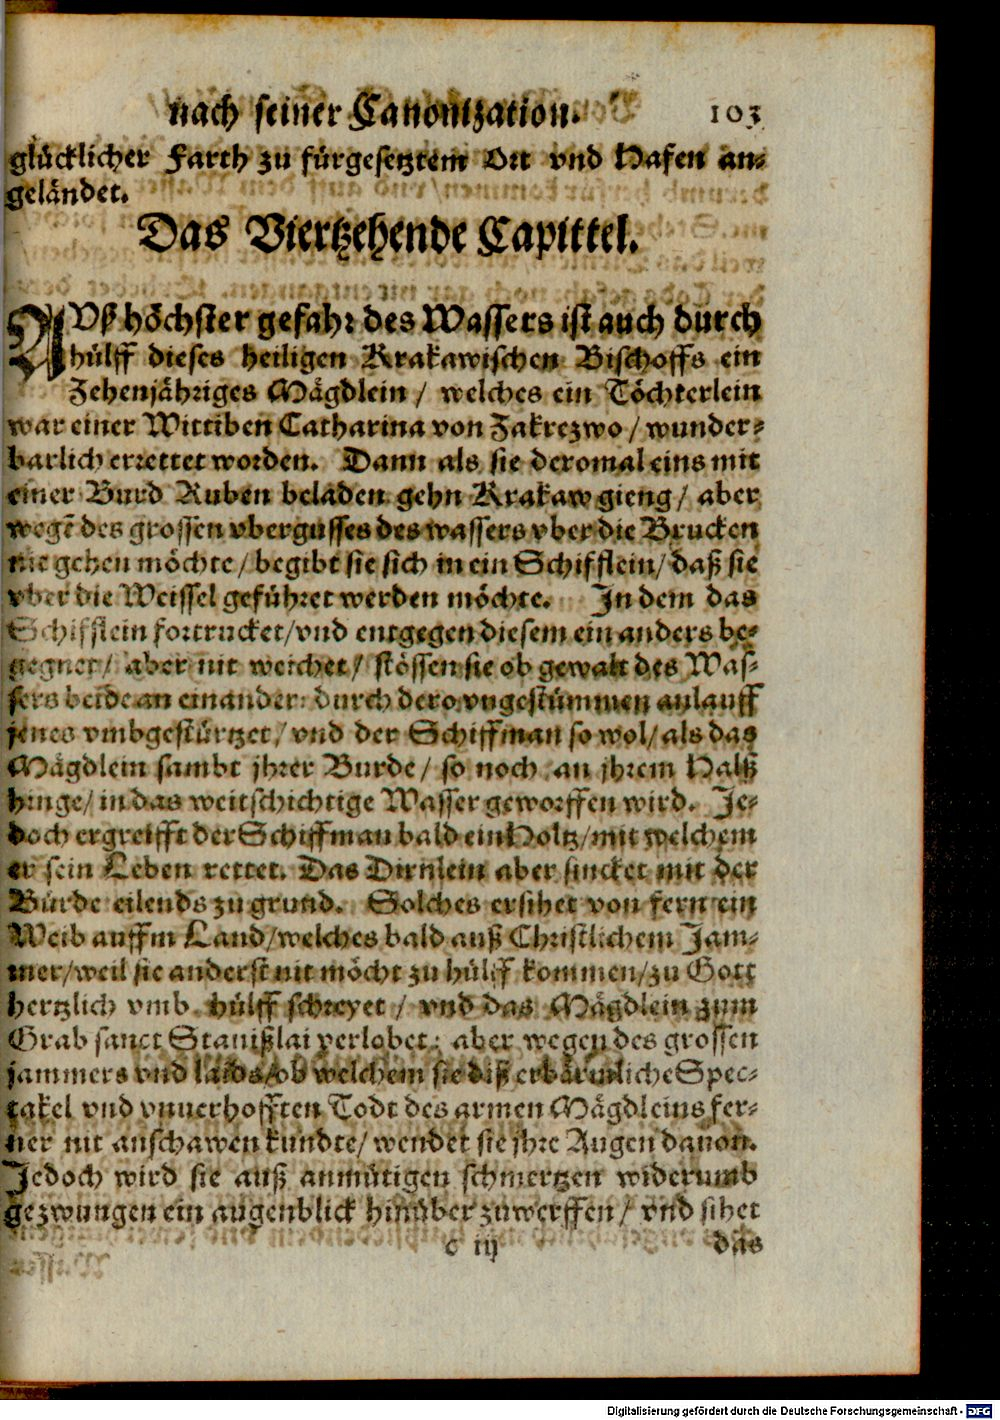 nach seiner Canonization. 103
glücklicher Farth zu fürgesetztem Ort vnd Hafen an-
geländet.
Das Viertzehende Capittel.
AVß höchster gefahr des Wassers ist auch durch
hülff dieses heiligen Krakawischen Bischoffs ein
Zehenjähriges Mägdlein / welches ein Töchterlein
war einer Wittiben Catharina von Zakrezwo / wunder-
barlich errettet worden. Dann als sie deromal eins mit
einer Burd Ruben beladen gehn Krakaw gieng / aber
wegē des grossen vbergusses des wassers vber die Brucken
nie gehen möchte / begibt sie sich in ein Schifflein / daß sie
vber die Weissel geführet werden möchte. In dem das
Schifflein fortrucket / vnd entgegen diesem ein anders be-
gegnet / aber nit weichet / stössen sie ob gewalt des Was-
sers beide an einander: durch dero vngestümmen anlauff
jenes vmbgestürtzet / vnd der Schiffman so wol / als das
Mägdlein sambt jhrer Burde / so noch an jhrem Haltz
hinge / in das weitschichtige Wasser geworffen wird. Je-
doch ergreifft der Schiffman bald ein Holtz / mit welchem
er sein Leben rettet. Das Dirnlein aber sincket mit der
Bürde eilends zu grund. Solches ersihet von fern ein
Weib auffm Land / welches bald auß Christlichem Jam-
mer / weil sie anderst nit möcht zu hülff kommen / zu Gott
hertzlich vmb hülff schreyet / vnd das Mägdlein zum
Grab sanct Stanißlai verlobet: aber wegen des grossen
jammers vnd laids / ob welchem sie diß erbärmliche Spec-
takel vnd vnuerhofften Todt des armen Mägdleins fer-
ner nit anschawen kundte / wendet sie jhre Augen dauon.
Jedoch wird sie auß anmütigen schmertzen widerumb
gezwungen ein augenblick hinüber zuwerffen / vnd sihet
c iij das
Digitalisierung gefördert durch die Deutsche Forschungsgemeinschaft - DFG